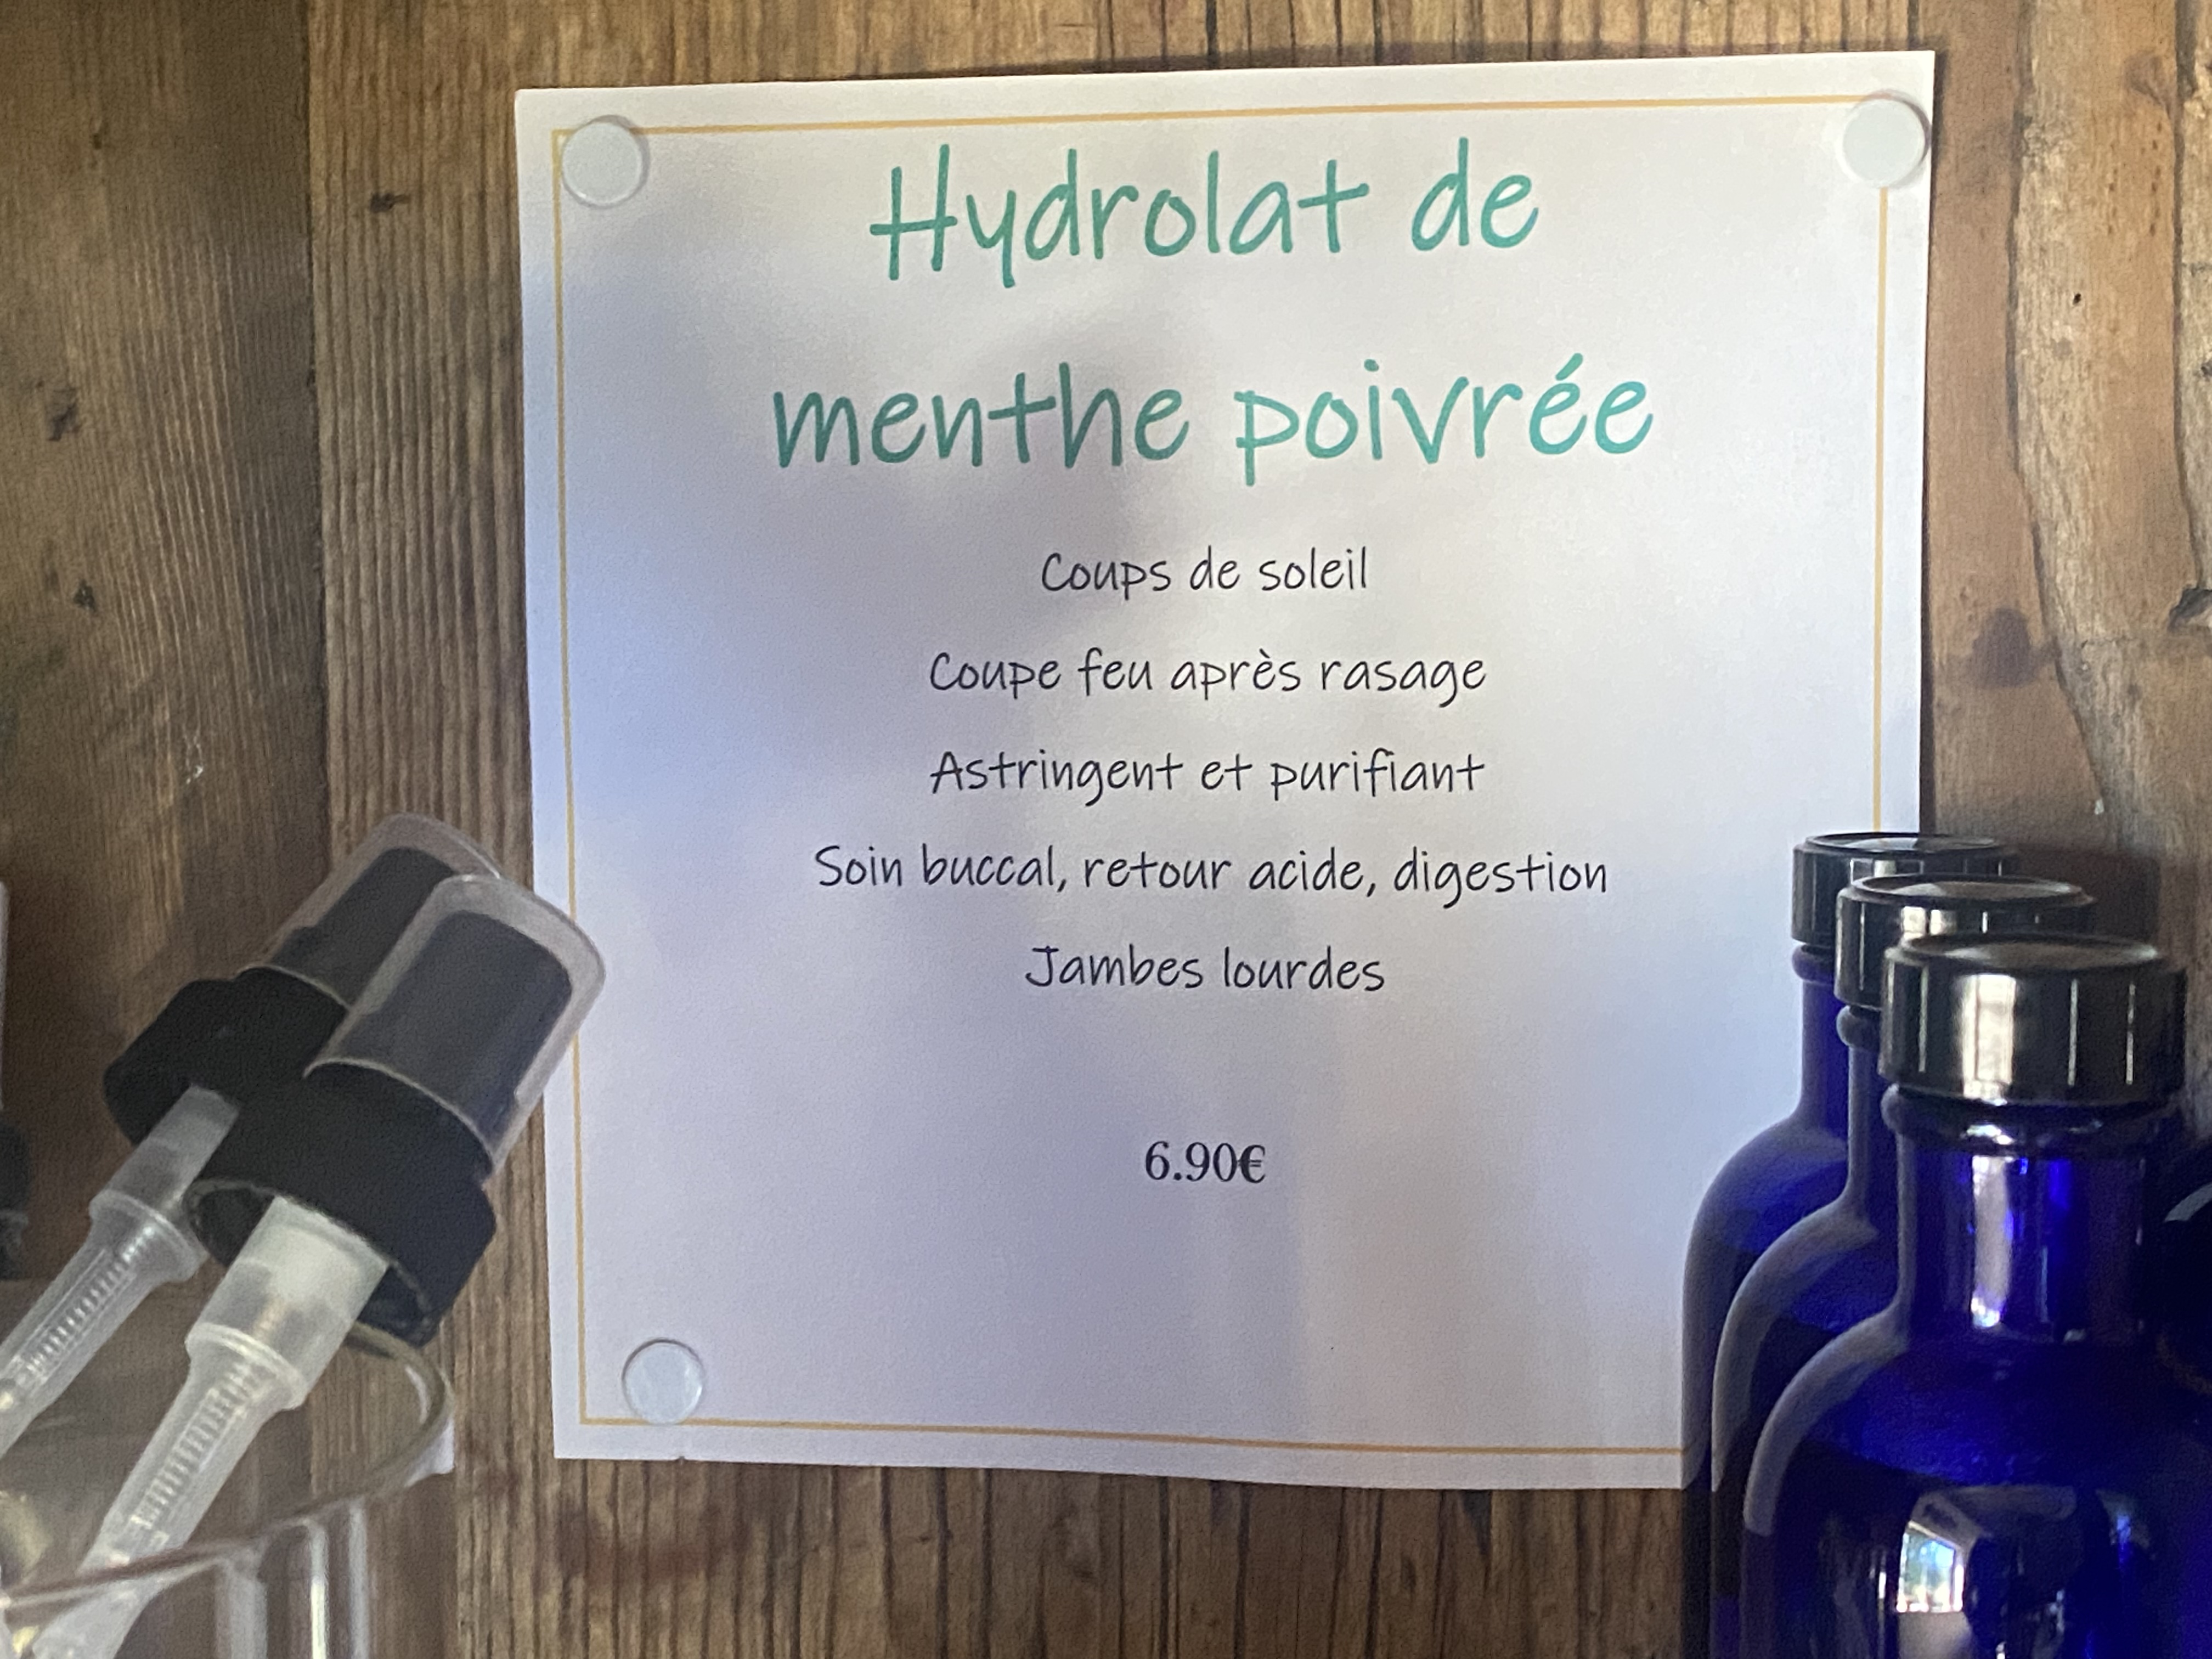 Hydrolat de
menthe poivrée
Coups de soleil
Coupe feu après rasage
Astringent et purifiant
Soin buccal, retour acide, digestion
Jambes lourdes
6.90€